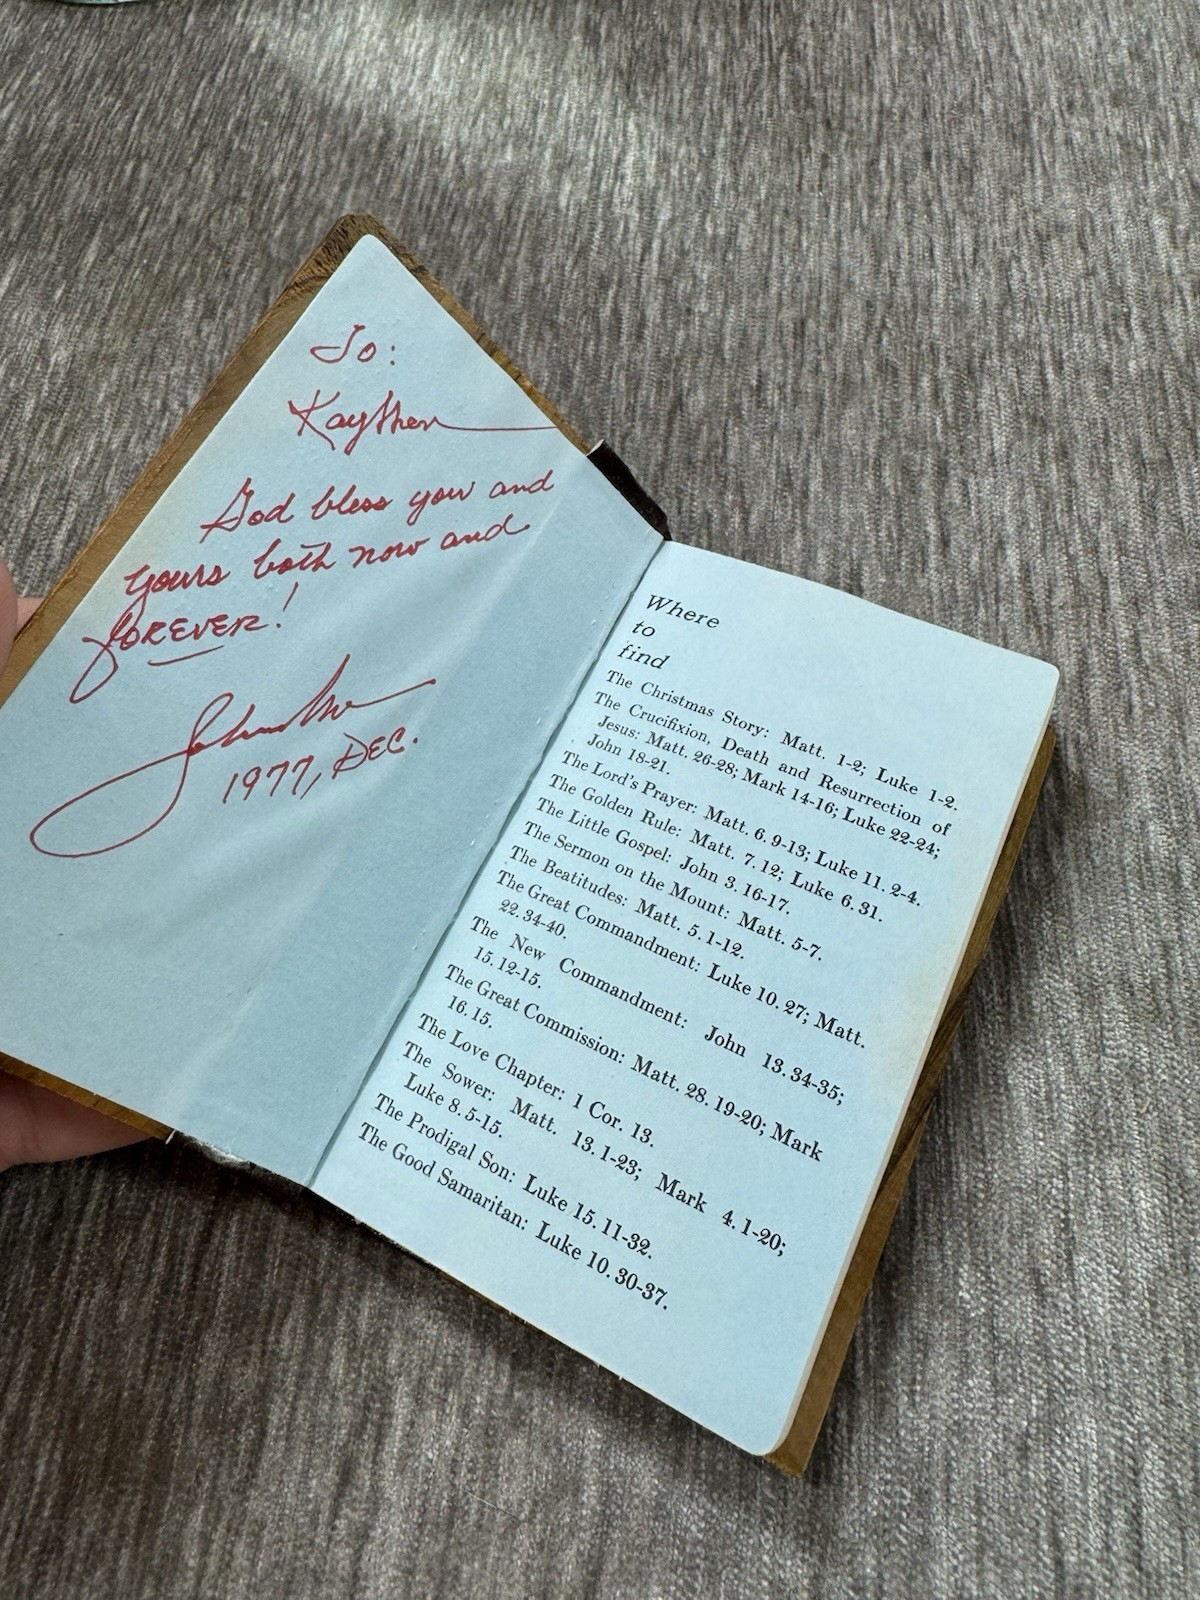 To:
Kaythen
God bless you and
yours both now and
forever!
1977, DEC.
Where
to
find
The Christmas Story: Matt. 1-2; Luke 1-2.
The Crucifixion, Death and Resurrection of
Jesus: Matt. 26-28; Mark 14-16; Luke 22-24;
John 18-21.
The Lord's Prayer: Matt. 6. 9-13; Luke 11. 2-4.
The Golden Rule: Matt. 7. 12; Luke 6. 31.
The Little Gospel: John 3. 16-17.
The Sermon on the Mount: Matt. 5-7.
The Beatitudes: Matt. 5. 1-12.
The Great Commandment: Luke 10. 27; Matt.
22. 34-40.
The New Commandment: John 13. 34-35;
15. 12-15.
The Great Commission: Matt. 28. 19-20; Mark
16. 15.
The Love Chapter: 1 Cor. 13.
The Sower: Matt. 13. 1-23; Mark 4. 1-20;
Luke 8. 5-15.
The Prodigal Son: Luke 15. 11-32.
The Good Samaritan: Luke 10. 30-37.